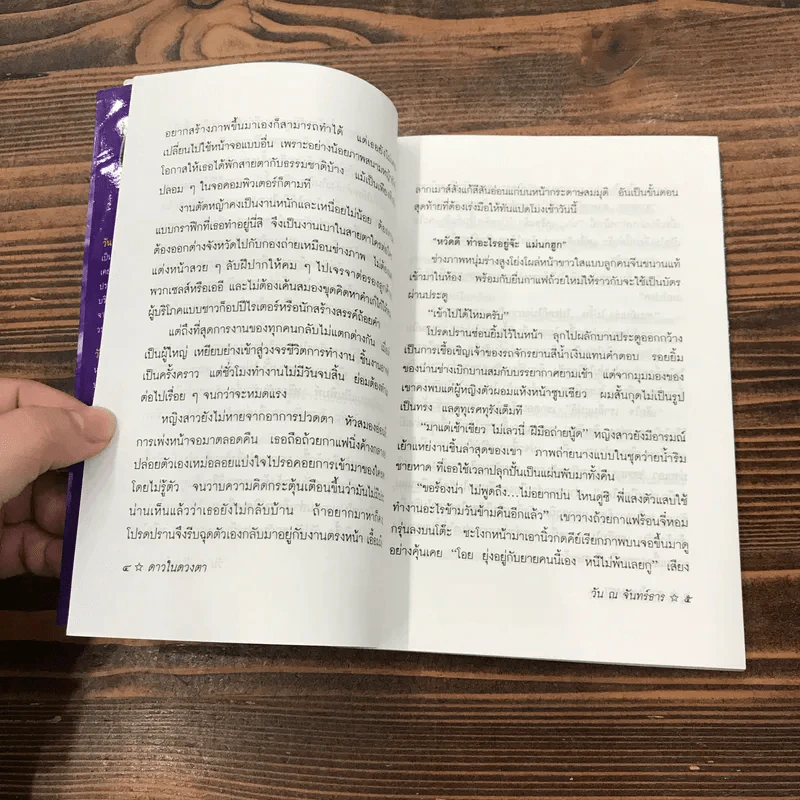 อยากสร้างภาพขึ้นมาเองก็สามารถทำได้ แต่เธอ
เปลี่ยนไปใช้หน้าจอแบบอื่น เพราะอย่างน้อยภาพสนามหญ้า
โอกาสให้เธอได้พักสายตากับธรรมชาติบ้าง แม้เป็นเพียง
ปลอม ๆ ในจอคอมพิวเตอร์ก็ตามที
งานตัดหญ้าคงเป็นงานหนักและเหนื่อยไม่น้อย ต้อง
แบบกราฟิกที่เธอทำอยู่นี่สิ จึงเป็นงานเบาในสายตาใคร
ต้องออกต่างจังหวัดไปกับกองถ่ายเหมือนช่างภาพ ไม่ต้อง
แต่งหน้าสวย ๆ ลับฝีปากให้คม ๆ ไปเจรจาต่อรองลูกค้า
พวกเซลส์หรือเออี และไม่ต้องเค้นสมองขุดคิดหาคำเก๋ไก๋
ผู้บริโภคแบบชาวก็อปปีไรเตอร์หรือนักสร้างสรรค์ถ้อยคำ
แต่ถึงที่สุดการงานของทุกคนกลับไม่แตกต่างกัน เมื่อ
เป็นผู้ใหญ่ เหยียบย่างเข้าสู่วงจรชีวิตการทำงาน ชิ้นงานอาจ
เป็นครั้งคราว แต่ชั่วโมงทำงานไม่มีวันจบสิ้น ย่อมต้อง
ต่อไปเรื่อย ๆ จนกว่าจะหมดแรง
หญิงสาวยังไม่หายจากอาการปวดตา หัวสมอง
การเพ่งหน้าจอมาตลอดคืน เธอถือถ้วยกาแฟนิ่งค้างกลาง
ปล่อยตัวเองเหม่อลอยแบ่งใจไปรอคอยการเข้ามาของใคร
โดยไม่รู้ตัว จนวาบความคิดกระตุ้นเตือนขึ้นว่ามันไม่
น่านเห็นแล้วว่าเธอยังไม่กลับบ้าน ถ้าอยากมาหาก็
โปรดปรานจึงรีบฉุดตัวเองกลับมาอยู่กับงานตรงหน้า เอื้อม
๔ ☆ ดาวในดวงตา
ลากเมาส์สั่งแก้สีสันอ่อนแก่บนหน้ากระดาษสมมุติ อันเป็นขั้นตอน
สุดท้ายที่ต้องเร่งมือให้ทันแปดโมงเช้าวันนี้
"หวัดดี ทำอะไรอยู่จ๊ะ แม่นกฮูก"
ช่างภาพหนุ่มร่างสูงโย่งโผล่หน้าขาวใสแบบลูกคนจีนขนานแท้
เข้ามาในห้อง พร้อมกับยื่นกาแฟถ้วยใหม่ให้ราวกับจะใช้เป็นบัตร
ผ่านประตู
"เข้าไปได้ไหมครับ"
โปรดปรานซ่อนยิ้มไว้ในหน้า ลุกไปผลักบานประตูออกกว้าง
เป็นการเชื้อเชิญเจ้าของรถจักรยานสีน้ำเงินแทนคำตอบ รอยยิ้ม
ของน่านช่างเบิกบานสมกับบรรยากาศยามเช้า แต่จากมุมมองของ
เขาคงพบแต่ผู้หญิงตัวผอมแห้งหน้าซูบเซียว ผมสั้นกุดไม่เป็นรูป
เป็นทรง แลดูทุเรศทุรังเต็มที
"มาแต่เช้าเชียว ไม่เลวนี่ ฝีมือถ่ายนู้ด" หญิงสาวยังมีอารมณ์
เย้าแหย่งานชิ้นล่าสุดของเขา ภาพถ่ายนางแบบในชุดว่ายน้ำริม
ชายหาด ที่เธอใช้เวลาปลุกปั้นเป็นแผ่นพับมาทั้งคืน
"ขอร้องน่า ไม่พูดถึง...ไม่อยากบ่น ไหนดูซิ พี่แสงตัวแสบใช้
ทำงานอะไรข้ามวันข้ามคืนอีกแล้ว" เขาวางถ้วยกาแฟร้อนจี๋หอม
กรุ่นลงบนโต๊ะ ชะโงกหน้ามาเอานิ้วกดคีย์เรียกภาพบนจอขึ้นมาดู
อย่างคุ้นเคย "โอย ยุ่งอยู่กับยายคนนี้เอง หนีไม่พ้นเลยกู" เสียง
วัน ณ จันทร์ธาร ☆ ๕